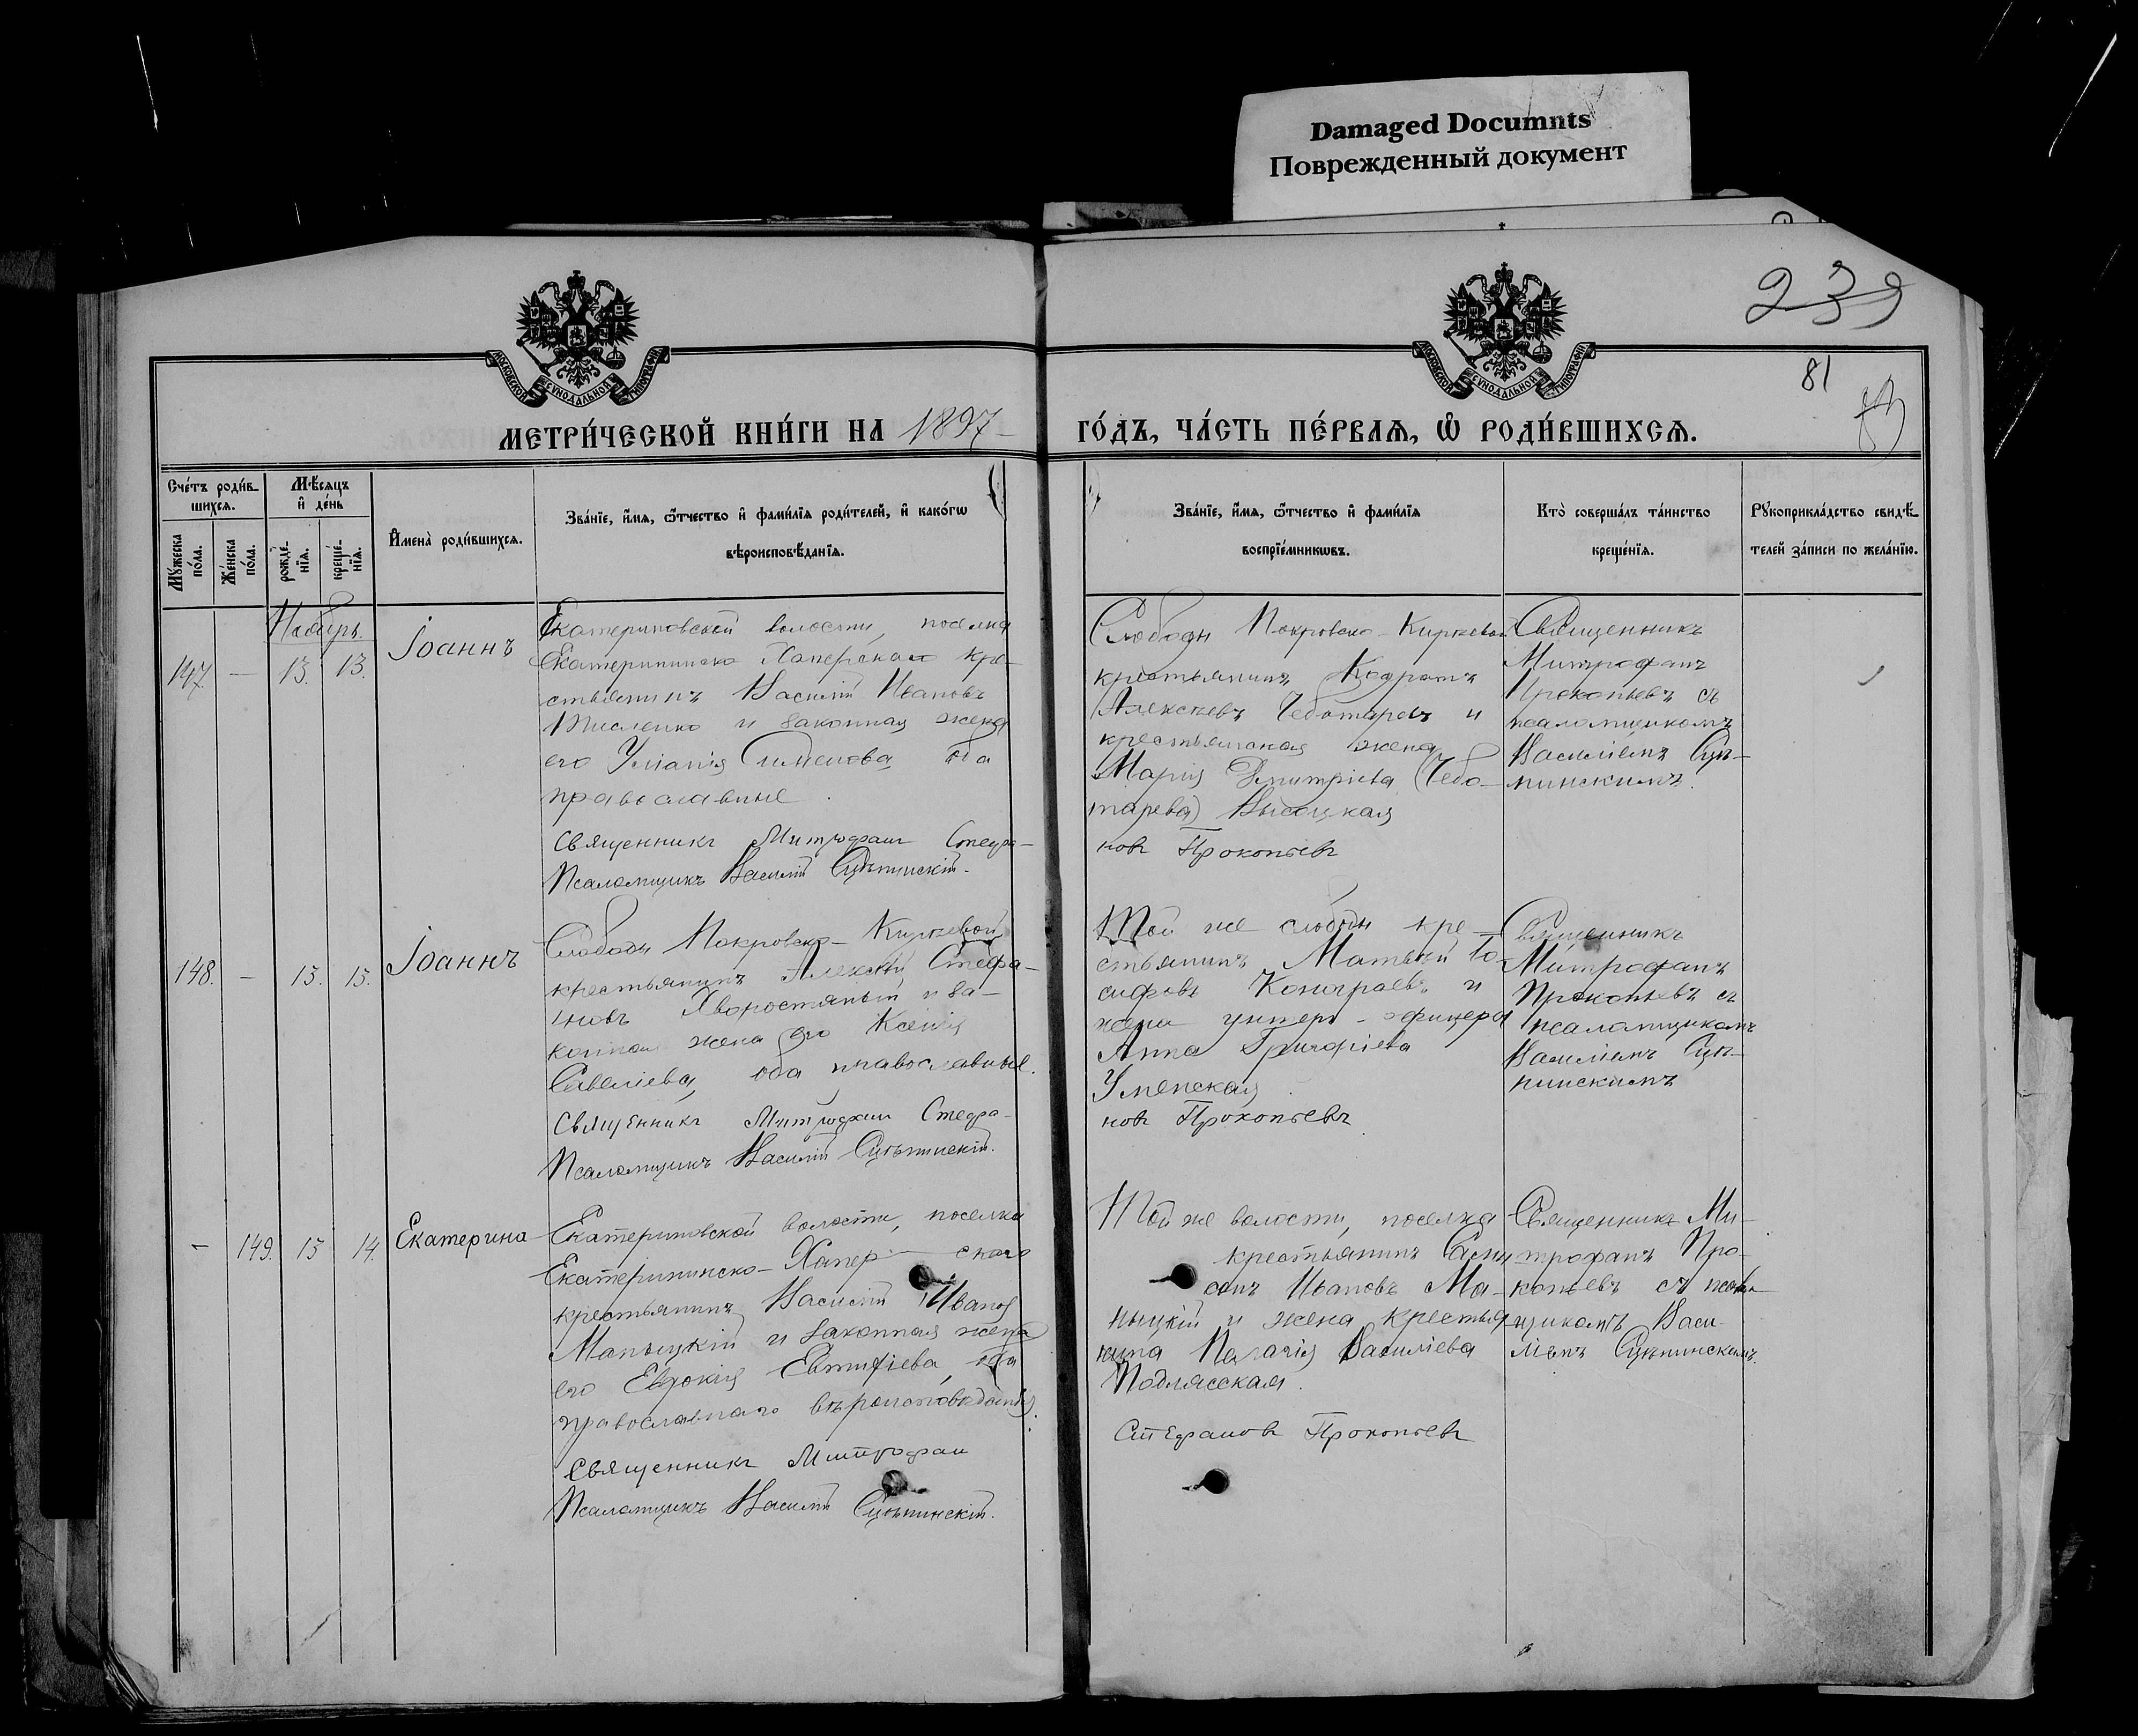 Damaged Documnts
Поврежденный документ
239
81
МОСКОВСКОЙ СУНОДАЛЬНОЙ ТИПОГРАФІИ
МОСКОВСКОЙ СУНОДАЛЬНОЙ ТИПОГРАФІИ
МЕТРИ́ЧЕСКОЙ КНИ́ГИ НА 1897
ГО́ДЪ, ЧА́СТЬ ПЕ́РВАЯ, Ѡ РОДИ́ВШИХСЯ.
Сче́тъ роди́в-
шихся.
Мꙋ́жеска по́ла.
Же́нска по́ла.
Мѣ́сяцъ
и҆ де́нь
рожде́-
нїя.
креще́-
нїя.
И҆мена̀ роди́вшихся.
Зва́нїе, и҆́мя, ѻ҆́тчество и҆ фами́лїя роди́телей, и҆ како́гѡ
вѣроисповѣ́данїя.
Зва́нїе, и҆́мя, ѻ҆́тчество и҆ фами́лїя
воспрїе́мникѡвъ.
Кто̀ соверша́лъ та́инство
креще́нїя.
Рꙋкоприкла́дство свидѣ́-
телей за́писи по жела́нїю.
Ноябрь
147. — 13. 13.
Іоаннъ
Екатериновской волости, поселка
Екатеринино Хаперскаго кре-
стьянинъ Василій Ивановъ
и законная жена
его Уліанія Симеонова оба
православные.
Священникъ Митрофанъ Стефа-
Псаломщикъ Василій Сцѣпинскій.
Слободы Покровско-Киреевой
крестьянинъ Кодратъ
Алексѣевъ Чеботаревъ и
крестьянская жена
Марія Дмитріева (Чебо-
тарева) Высоцкая
новъ Прокопьевъ
Священникъ
Митрофанъ
Прокопьевъ съ
псаломщикомъ
Василіемъ Сцѣ-
пинскимъ.
148. — 15. 15.
Іоаннъ
Слободы Покровско-Киреевой
крестьянинъ Алексѣй Стефа-
новъ Хворостяный и за-
конная жена его Ксенія
Савеліева, оба православные.
Священникъ Митрофанъ Стефа-
Псаломщикъ Василій Сцѣпинскій.
Той же слободы кре-
стьянинъ Матвѣй Іо-
сифовъ и
жена унтеръ-офицера
Анна Григоріева
Уменская
новъ Прокопьевъ
Священникъ
Митрофанъ
Прокопьевъ съ
псаломщикомъ
Василіемъ Сцѣ-
пинскимъ
— 149. 13 14.
Екатерина
Екатериновской волости, поселка
Екатеринино-Хапер скаго
крестьянинъ Василій Ивановъ
Маныцкій и законная жена
его Евдокія Евтихіева, оба
православнаго вѣроисповѣданія.
Священникъ Митрофан
Псаломщикъ Василій Сцѣпинскій.
Той же волости, поселка
крестьянинъ
Ивановъ Ма-
ныцкій и жена крестья-
нина Пелагія Василіева
Подлясская.
Стефановъ Прокопьевъ
Священникъ Ми-
трофанъ Про-
копьевъ съ псалом-
щикомъ Васи-
ліемъ Сцѣпинскимъ.